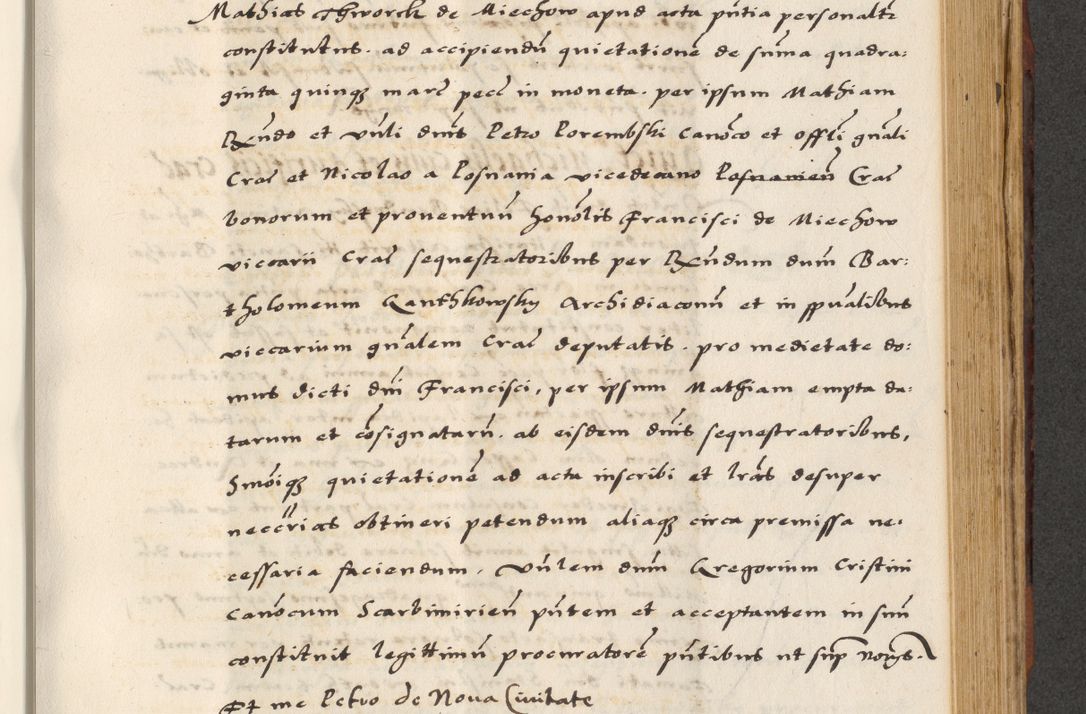 Mathias Thworek de Miechow apud acta pñtia personaltr
constitutus. ad accipiendũ quietationẽ de sũma quadra:
ginta quinqꝫ marc pecc in moneta. per ipsum Mathiam
Rẽndo et vñli dñis Petro Porembski Canõco et offlĩ gñali
Crac et Nicolao a Posnania vicedecano Posnanieñ Crac
bonorum et proventuũ honõlis Francisci de Miechow
viccarii Crac sequestratoribus per Rẽndum dum̃ Bar:
tholomeum Ganthkowsky Archidiaconũ et in sp̃ualibus
viccarium gñalem Crac deputatis. pro medietate do:
mus dicti dñi Francisci, per ipsum Mathiam empta da:
tarum et cõsignatarũ. ab eisdem dñis sequestratoribus,
Smõiqꝫ quietationẽ ad acta inscribi et lrãs desuper
neccr̃ias obtineri petendum aliaqꝫ circa premissa ne:
cessaria faciendum. Vñlem dum̃ Gregorium Cristini
Canõcum Scarbimirieñ pñtem et acceptantem in suũ
constituit legittimũ procuratorẽ pñtibus ut sup̃ Norys.
Et me Petro de Nova Civitate